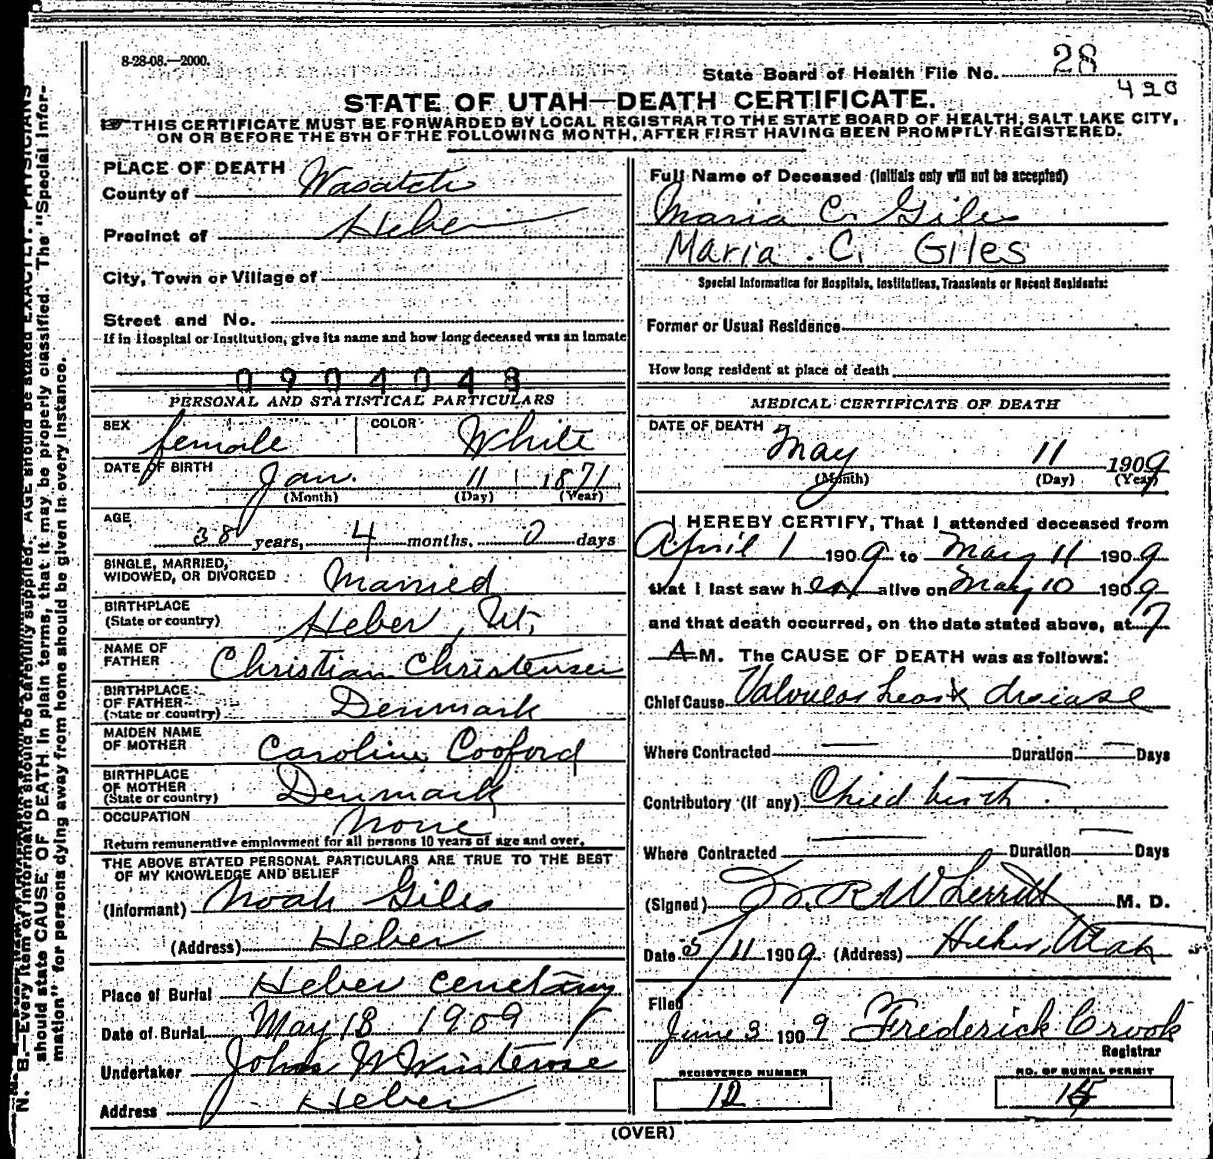 8-28-08.—2000.
State Board of Health File No. 28
420
STATE OF UTAH—DEATH CERTIFICATE.
☞ THIS CERTIFICATE MUST BE FORWARDED BY LOCAL REGISTRAR TO THE STATE BOARD OF HEALTH, SALT LAKE CITY,
ON OR BEFORE THE 5TH OF THE FOLLOWING MONTH, AFTER FIRST HAVING BEEN PROMPTLY REGISTERED.
PLACE OF DEATH
County of Wasatch
Precinct of Heber
City, Town or Village of
Street and No.
If in Hospital or Institution, give its name and how long deceased was an inmate
0904048
PERSONAL AND STATISTICAL PARTICULARS
SEX female COLOR White
DATE OF BIRTH Jan. 11 1871
(Month) (Day) (Year)
AGE
38 years, 4 months. 0 days
SINGLE, MARRIED,
WIDOWED, OR DIVORCED Married
BIRTHPLACE
(State or country) Heber, Ut,
NAME OF
FATHER Christian Christensen
BIRTHPLACE
OF FATHER
(State or country) Denmark
MAIDEN NAME
OF MOTHER Caroline Cooford
BIRTHPLACE
OF MOTHER
(State or country) Denmark
OCCUPATION None
Return remunerative employment for all persons 10 years of age and over.
THE ABOVE STATED PERSONAL PARTICULARS ARE TRUE TO THE BEST
OF MY KNOWLEDGE AND BELIEF
(Informant) Noah Giles
(Address) Heber
Place of Burial Heber Cemetary
Date of Burial May 18 1909
Undertaker John W Winterose
Address Heber
Full Name of Deceased (Initials only will not be accepted)
Maria C. Giles
Maria. C. Giles
Special Information for Hospitals, Institutions, Transients or Recent Residents:
Former or Usual Residence
How long resident at place of death
MEDICAL CERTIFICATE OF DEATH
DATE OF DEATH May 11 1909
(Month) (Day) (Year)
I HEREBY CERTIFY, That I attended deceased from
April 1 1909 to May 11 1909
that I last saw her alive on May 10 1909
and that death occurred, on the date stated above, at 7
A M. The CAUSE OF DEATH was as follows:
Chief Cause Valvular heart disease
Where Contracted — Duration — Days
Contributory (if any) Child birth.
Where Contracted — Duration — Days
(Signed) M. D.
Date 5/11 1909 (Address) Heber, Utah
Filed
June 3 1909 Frederick Crook
Registrar
REGISTERED NUMBER
12
NO. OF BURIAL PERMIT
(OVER)
N. B.—Every item of information should be carefully supplied. AGE should be stated EXACTLY. PHYSICIANS
should state CAUSE OF DEATH in plain terms, that it may be properly classified. The "Special Infor-
mation" for persons dying away from home should be given in every instance.